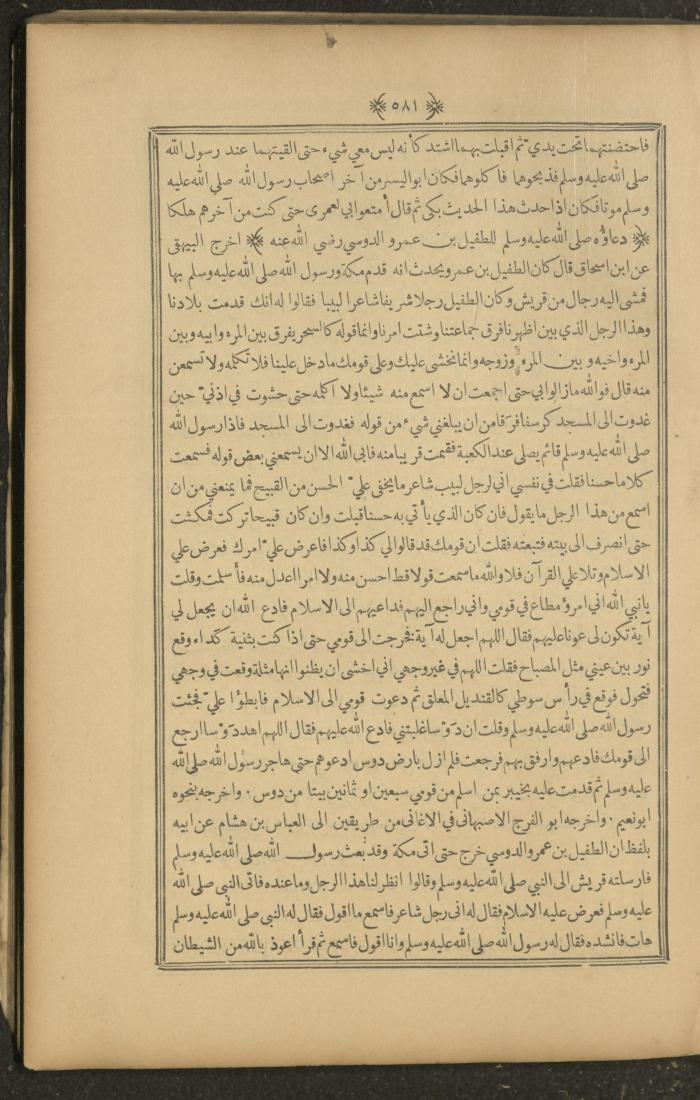 ٥٨١
فاحتضنتهما تحت يديّ ثم اقبلت بهما اشتد كأنه ليس معي شيء حتى القيتهما عند رسول الله
صلى الله عليه وسلم فذبحوها فاكلوها فكان ابو اليسر من آخر اصحاب رسول الله صلى الله عليه
وسلم موتا فكان اذا حدث هذا الحديث بكى ثم قال أمتعوا بي لعمرى حتى كنت من آخرهم هلكا
دعاؤه صلى الله عليه وسلم للطفيل بن عمرو الدوسي رضي الله عنه اخرج البيهقى
عن ابن اسحاق قال كان الطفيل بن عمرو يحدث انه قدم مكة ورسول الله صلى الله عليه وسلم بها
فمشى اليه رجال من قريش وكان الطفيل رجلا شريفا شاعرا لبيبا فقالوا له انك قدمت بلادنا
وهذا الرجل الذي بين اظهرنا فرق جماعتنا وشتت امرنا وانما قوله كالسحر يفرق بين المرء وابيه وبين
المرء واخيه وبين المرء وزوجه وانما نخشى عليك وعلى قومك ما دخل علينا فلا تكلمه ولا تسمعن
منه قال فوالله مازالوا بي حتى اجمعت ان لا اسمع منه شيئا ولا اكلمه حتى حشوت في اذنيّ حين
غدوت الى المسجد كرسفا فرَقا من ان يبلغني شيء من قوله فغدوت الى المسجد فاذا رسول الله
صلى الله عليه وسلم قائم يصلى عند الكعبة فقمت قريبا منه فابى الله الا ان يسمعني بعض قوله فسمعت
كلاما حسنا فقلت في نفسي اني لرجل لبيب شاعر ما يخفى عليّ الحسن من القبيح فما يمنعني من ان
اسمع من هذا الرجل ما يقول فان كان الذي يأتي به حسنا قبلت وان كان قبيحا تركت فمكثت
حتى انصرف الى بيته فتبعته فقلت ان قومك قد قالوا لي كذا وكذا فاعرض عليّ امرك فعرض علي
الاسلام وتلا علي القرآن فلا والله ما سمعت قولا قط احسن منه ولا امرا اعدل منه فأسلمت وقلت
يا نبي الله اني امرؤ مطاع في قومي واني راجع اليهم فداعيهم الى الاسلام فادع الله ان يجعل لي
آية تكون لى عونا عليهم فقال اللهم اجعل له آية فخرجت الى قومي حتى اذا كنت بثنية كداء وقع
نور بين عيني مثل المصباح فقلت اللهم في غير وجهي اني اخشى ان يظنوا انها مثلة وقعت في وجهي
فتحول فوقع في رأس سوطي كالقنديل المعلق ثم دعوت قومي الى الاسلام فابطؤا عليّ فجئت
رسول الله صلى الله عليه وسلم وقلت ان دَوْسا غلبتني فادع الله عليهم فقال اللهم اهد دَوْسا ارجع
الى قومك فادعهم وارفق بهم فرجعت فلم ازل بارض دوس ادعوهم حتى هاجر رسول الله صلى الله
عليه وسلم ثم قدمت عليه بخيبر بمن اسلم من قومي سبعين او ثمانين بيتا من دوس · واخرجه بنحوه
ابو نعيم · واخرجه ابو الفرج الاصبهانى في الاغانى من طريقين الى العباس بن هشام عن ابيه
بلفظ ان الطفيل بن عمرو الدوسي خرج حتى اتى مكة وقد بعث رسول الله صلى الله عليه وسلم
فارسلته قريش الى النبي صلى الله عليه وسلم وقالوا انظر لنا هذا الرجل وما عنده فاتى النبى صلى الله
عليه وسلم فعرض عليه الاسلام فقال له انى رجل شاعر فاسمع ما اقول فقال له النبى صلى الله عليه وسلم
هات فانشده فقال له رسول الله صلى الله عليه وسلم وانا اقول فاسمع ثم قرأ اعوذ بالله من الشيطان